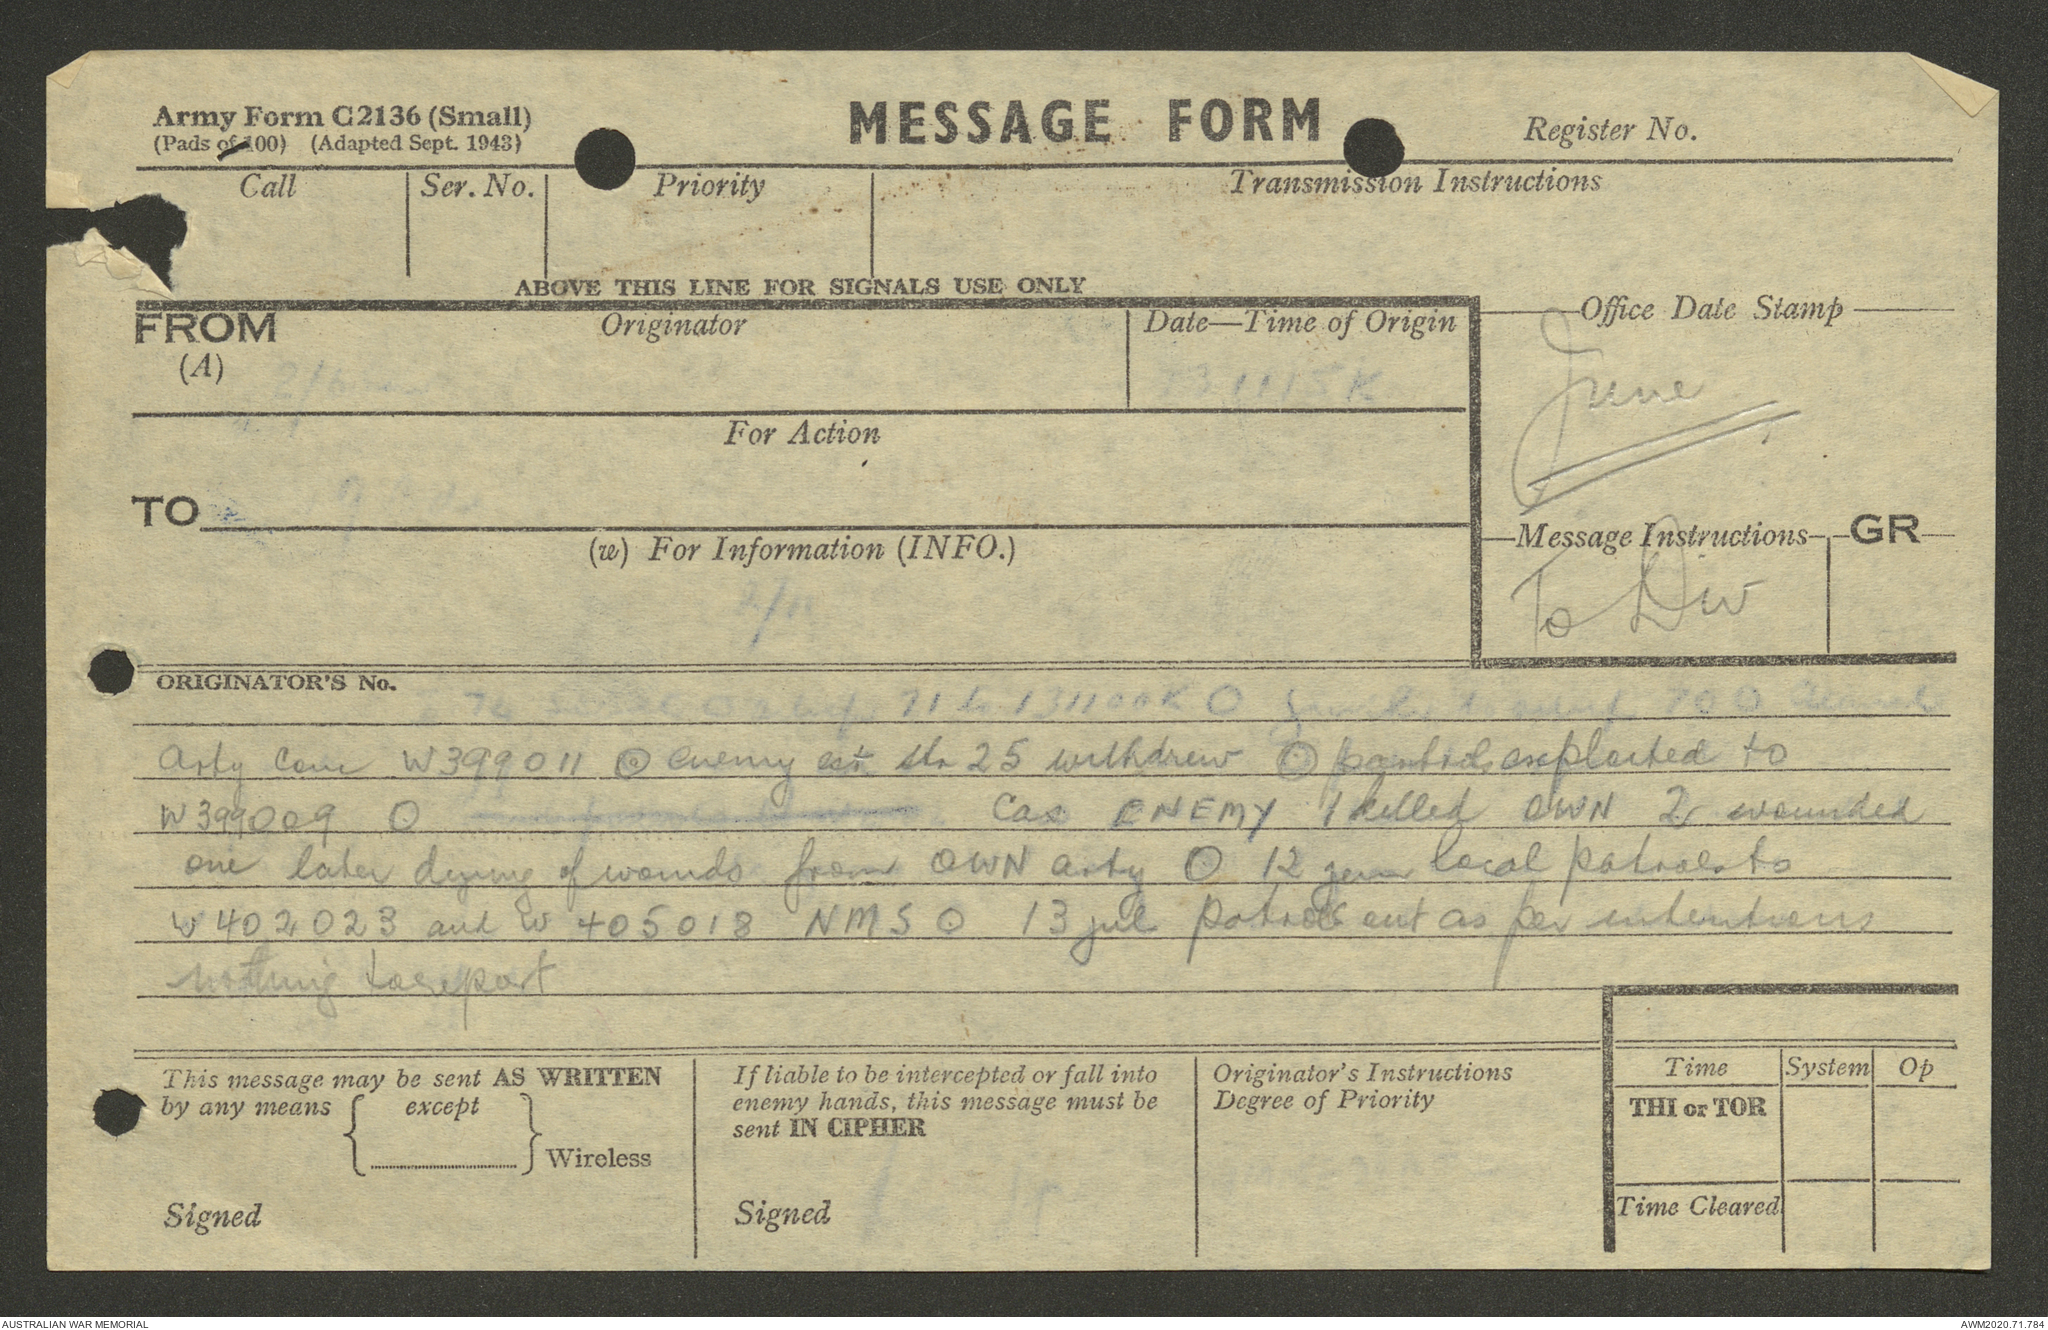 Army Form C2136 (Small)
(Pads of 100) (Adapted Sept. 1943)
MESSAGE FORM
Register No.
Call
Ser. No.
Priority
Transmission Instructions
ABOVE THIS LINE FOR SIGNALS USE ONLY
FROM
(A)
Originator
Date—Time of Origin
131115K
Office Date Stamp
June
For Action
TO
(w) For Information (INFO.)
Message Instructions
GR
To Div
ORIGINATOR'S No.
74 O 71 to 131100K O 70 O
Arty Conc W399011 O enemy est str 25 withdrew O patrols exploited to
W399009 O Cas ENEMY 1 killed OWN 2 wounded
one later dying of wounds from OWN arty O 12 local patrols to
W402023 and W405018 NMS O 13 patrols out as per intentions
nothing to report
This message may be sent AS WRITTEN
by any means
except
Wireless
Signed
If liable to be intercepted or fall into
enemy hands, this message must be
sent IN CIPHER
Signed
Originator's Instructions
Degree of Priority
Time
System
Op
THI or TOR
Time Cleared
AUSTRALIAN WAR MEMORIAL
AWM2020.71.784